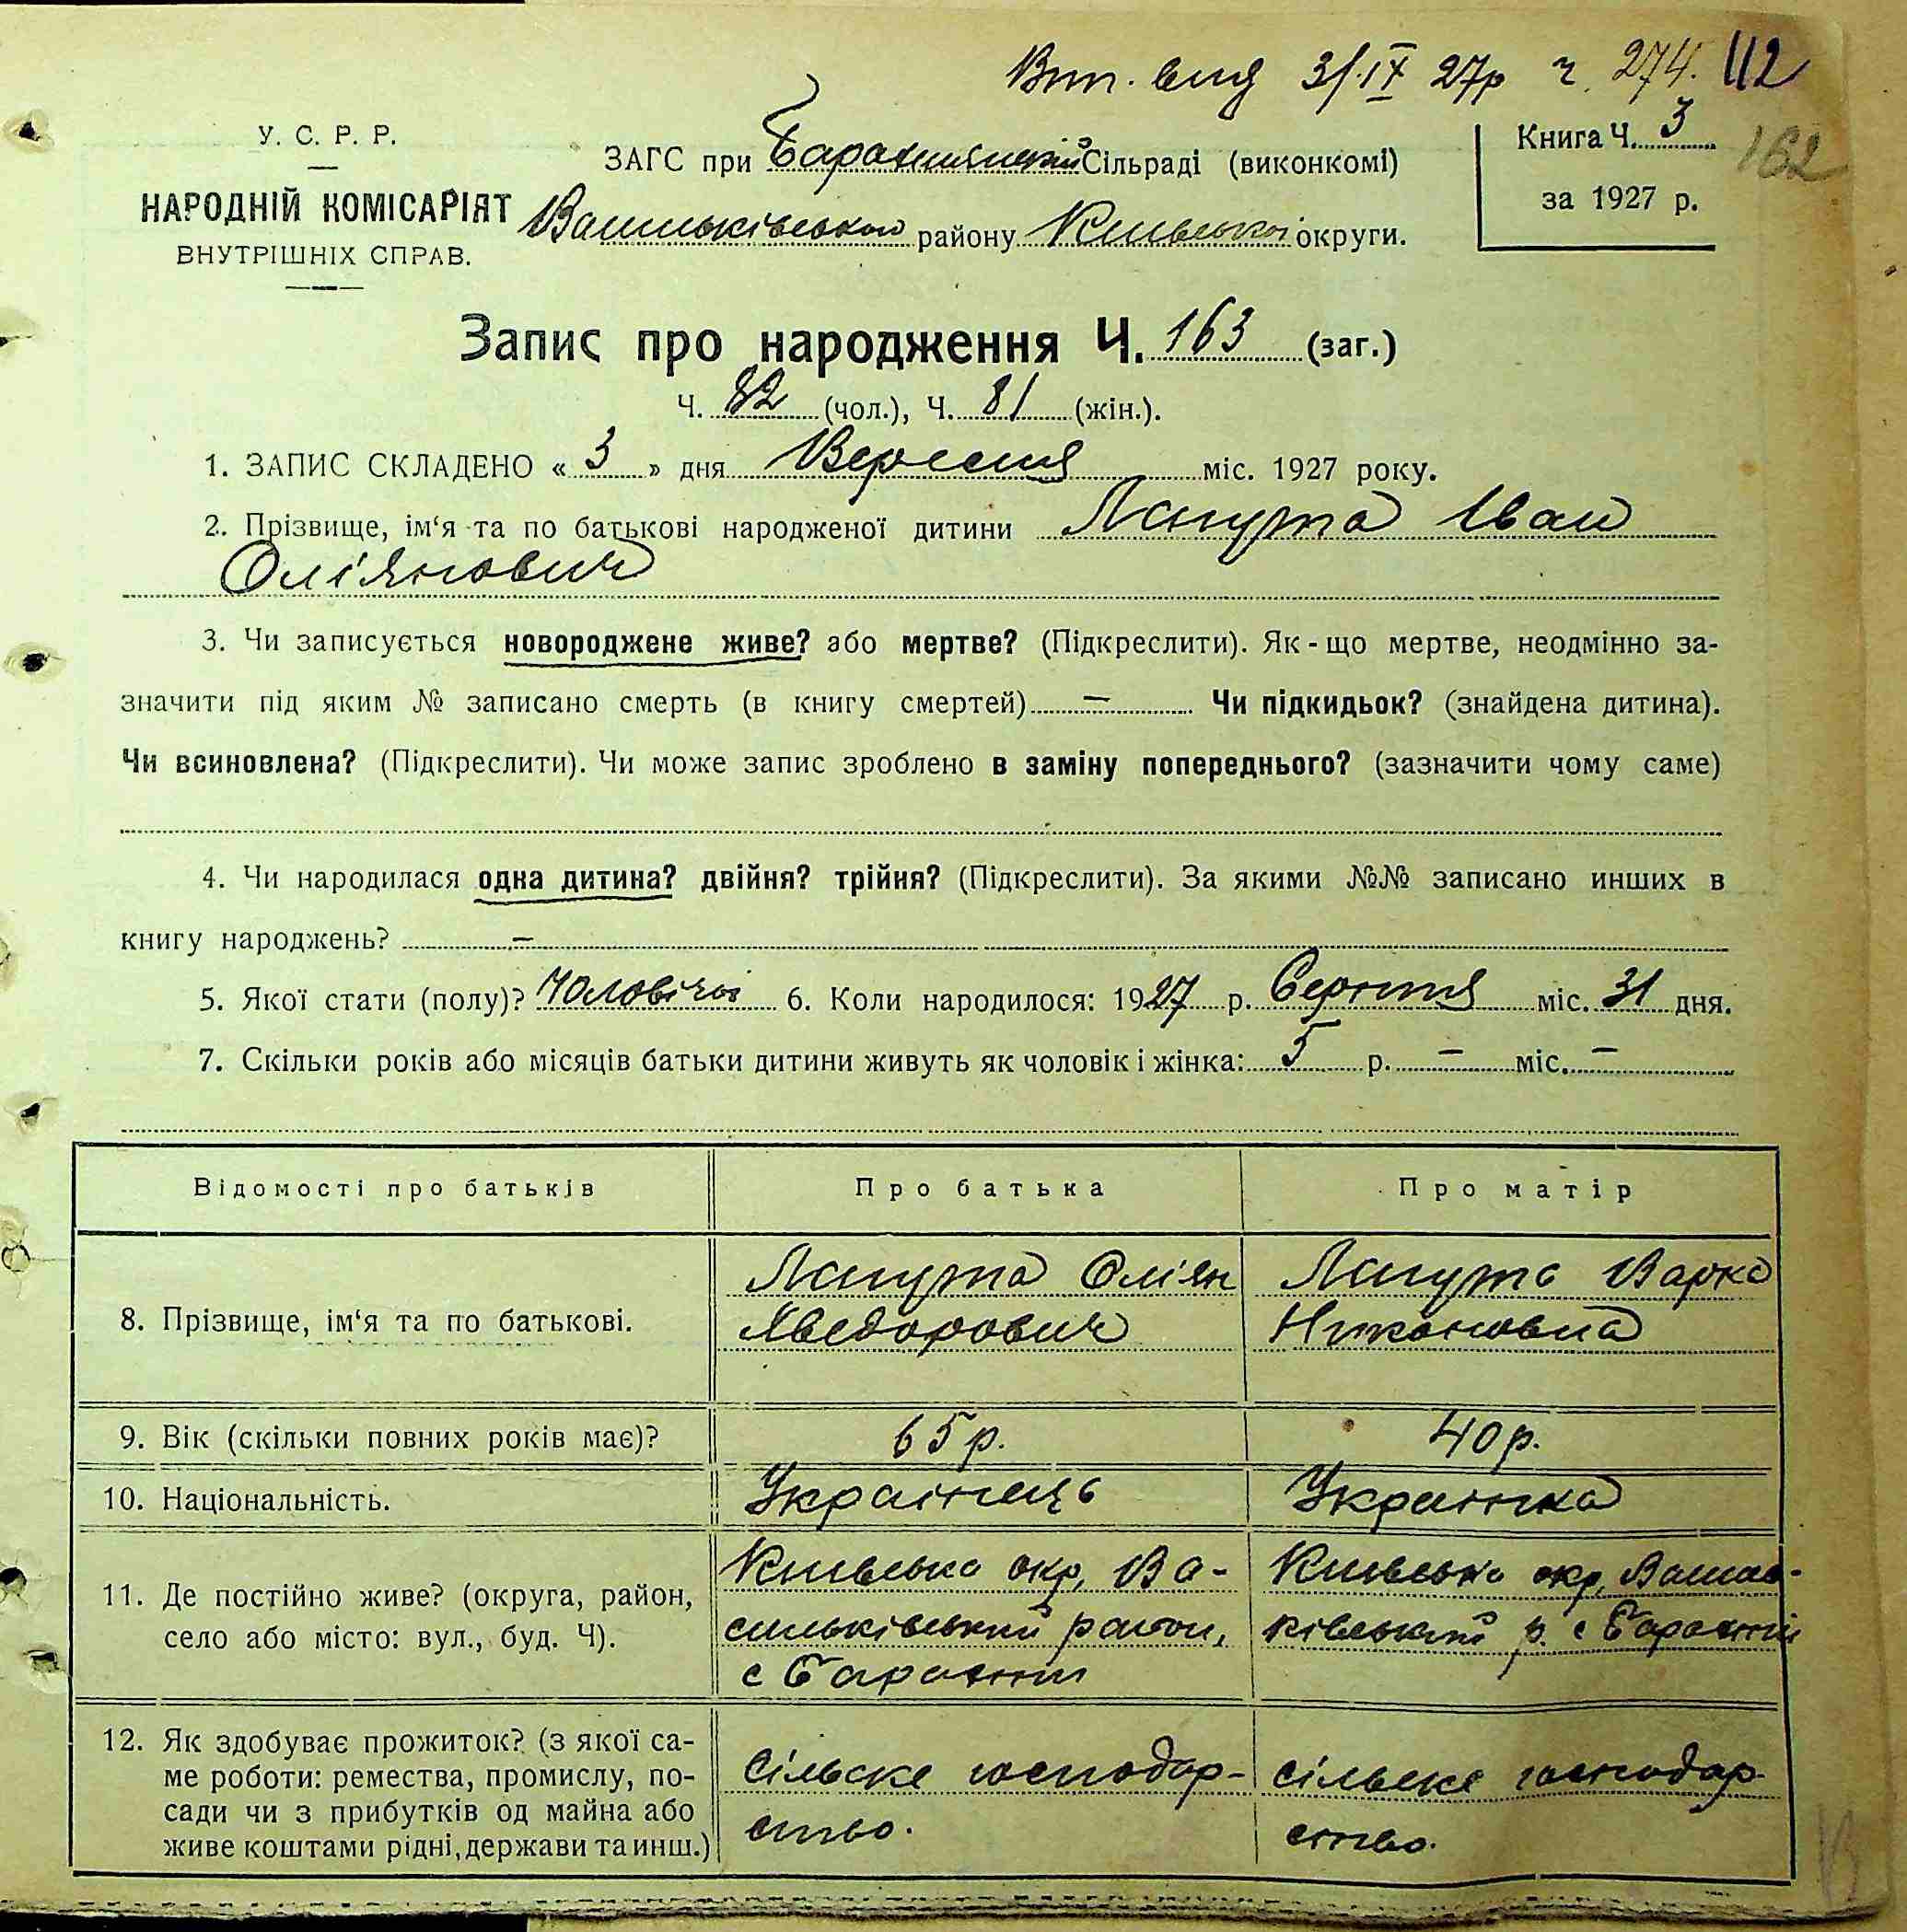 Вит. вид 3/ІХ 27р ч. 274. 112
У. С. Р. Р.
НАРОДНІЙ КОМІСАРІЯТ
ВНУТРІШНІХ СПРАВ.
ЗАГС при Барахтянській Сільраді (виконкомі)
Васильківського району Київської округи.
Книга Ч. 3
за 1927 р.
162
Запис про народження Ч. 163 (заг.)
Ч. 82 (чол.), Ч. 81 (жін.).
1. ЗАПИС СКЛАДЕНО « 3 » дня Вересня міс. 1927 року.
2. Прізвище, ім‘я та по батькові народженої дитини Лапута Іван
Оліянович
3. Чи записується новороджене живе? або мертве? (Підкреслити). Як-що мертве, неодмінно за-
значити під яким № записано смерть (в книгу смертей) — Чи підкидьок? (знайдена дитина).
Чи всиновлена? (Підкреслити). Чи може запис зроблено в заміну попереднього? (зазначити чому саме)
4. Чи народилася одна дитина? двійня? трійня? (Підкреслити). За якими №№ записано инших в
книгу народжень? —
5. Якої стати (полу)? Чоловічої 6. Коли народилося: 1927 р. Серпня міс. 31 дня.
7. Скільки років або місяців батьки дитини живуть як чоловік і жінка: 5 р. — міс. —
Відомості про батьків Про батька Про матір
8. Прізвище, ім‘я та по батькові.
Лапута Оліян
Хведорович
Лапута Варка
Никоновна
9. Вік (скільки повних років має)? 65 р. 40 р.
10. Національність. Українець Українка
11. Де постійно живе? (округа, район,
село або місто: вул., буд. Ч).
Київська окр, Ва-
сильківський район,
с Барахти
Київська окр, Василь-
ківський р. с Барахти
12. Як здобуває прожиток? (з якої са-
ме роботи: ремества, промислу, по-
сади чи з прибутків од майна або
живе коштами рідні, держави та инш.)
Сільске господар-
ство.
сільске господар-
ство.